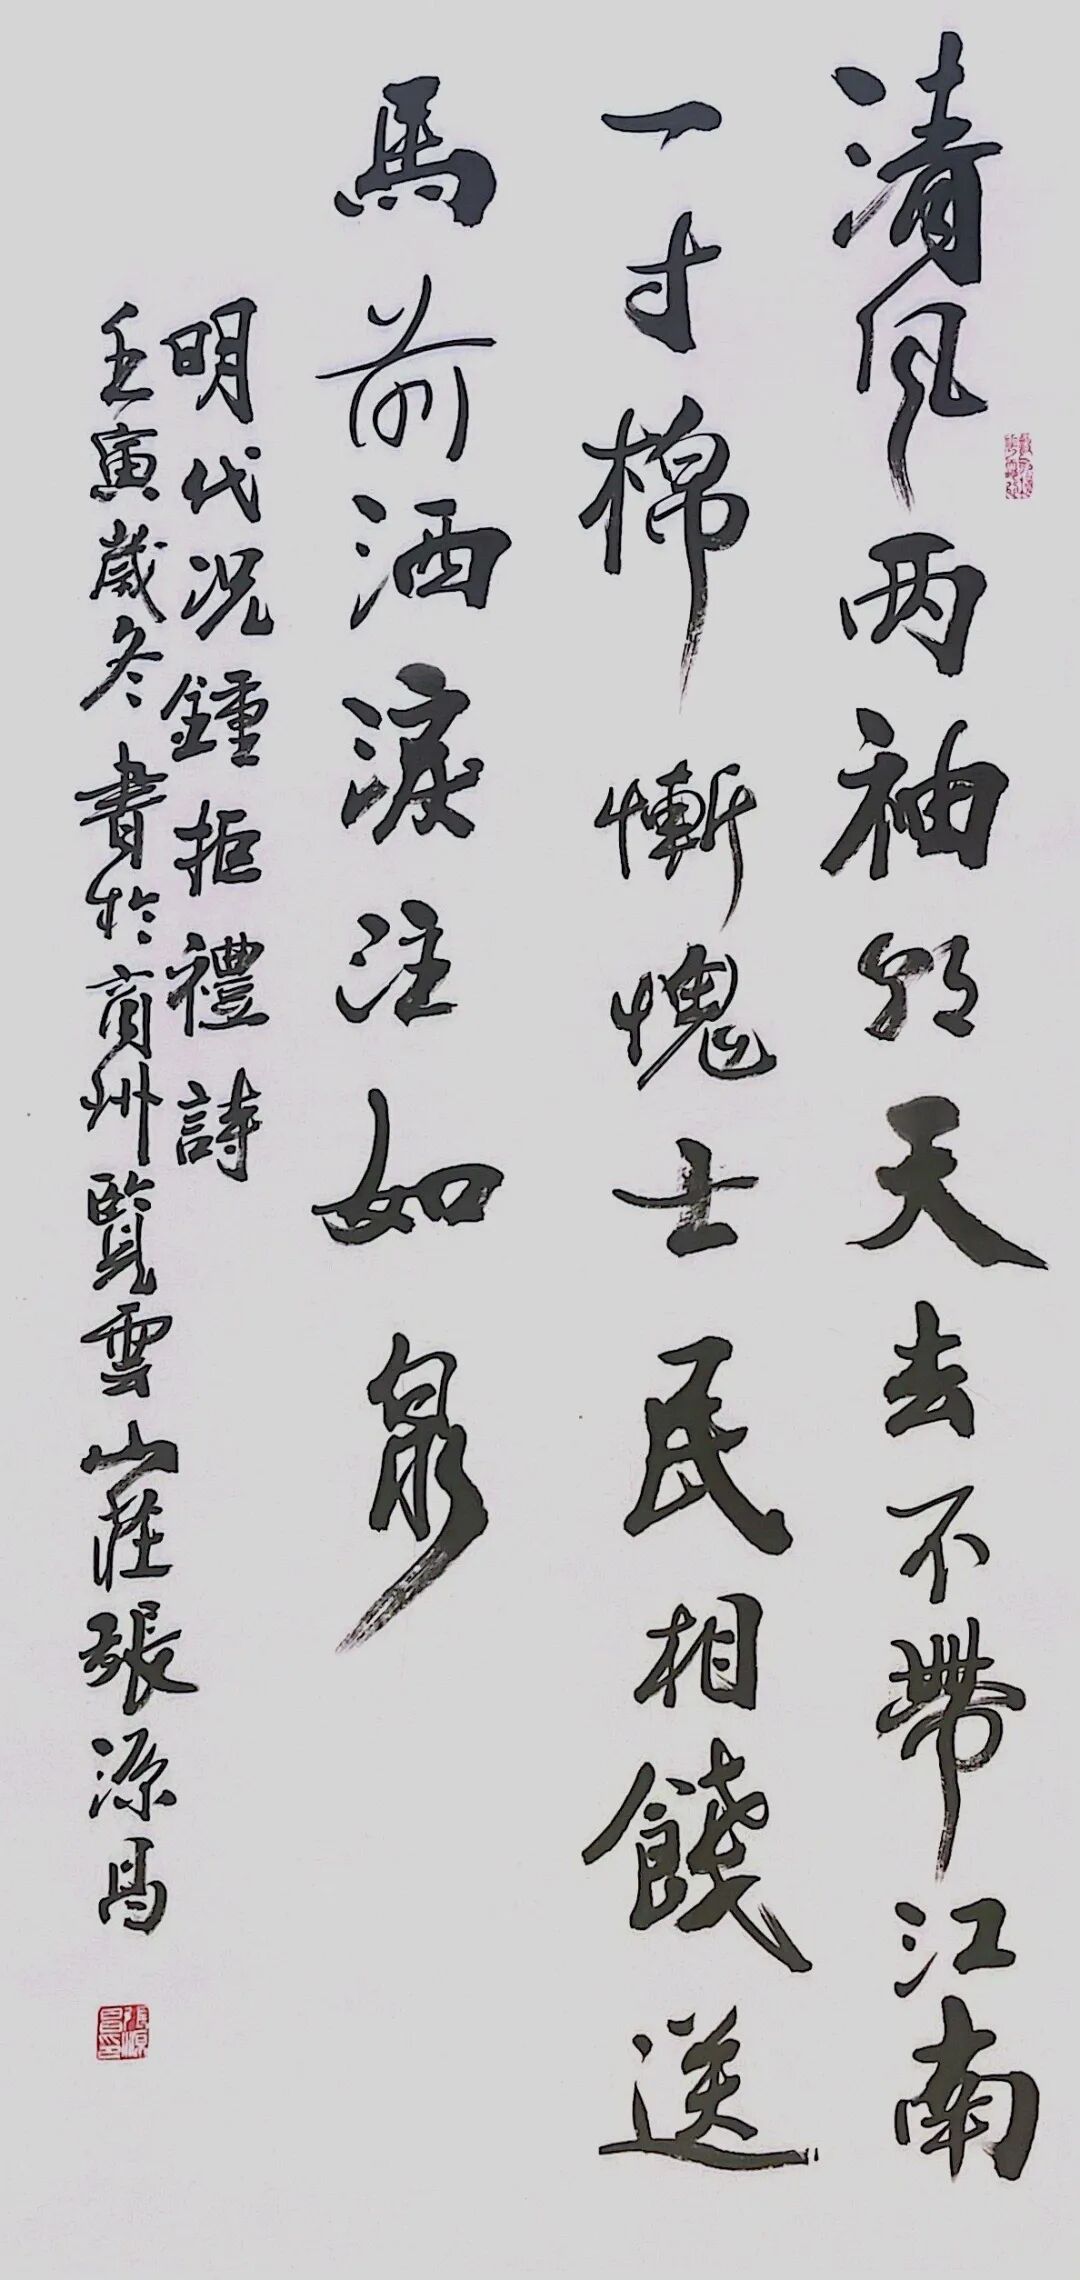 清风两袖朝天去不帶江南
一寸棉慚愧士民相餞送
馬前洒淚注如泉
明代况鍾拒禮詩
壬寅歲冬書於商州覽雲山莊張源昌
張源昌印